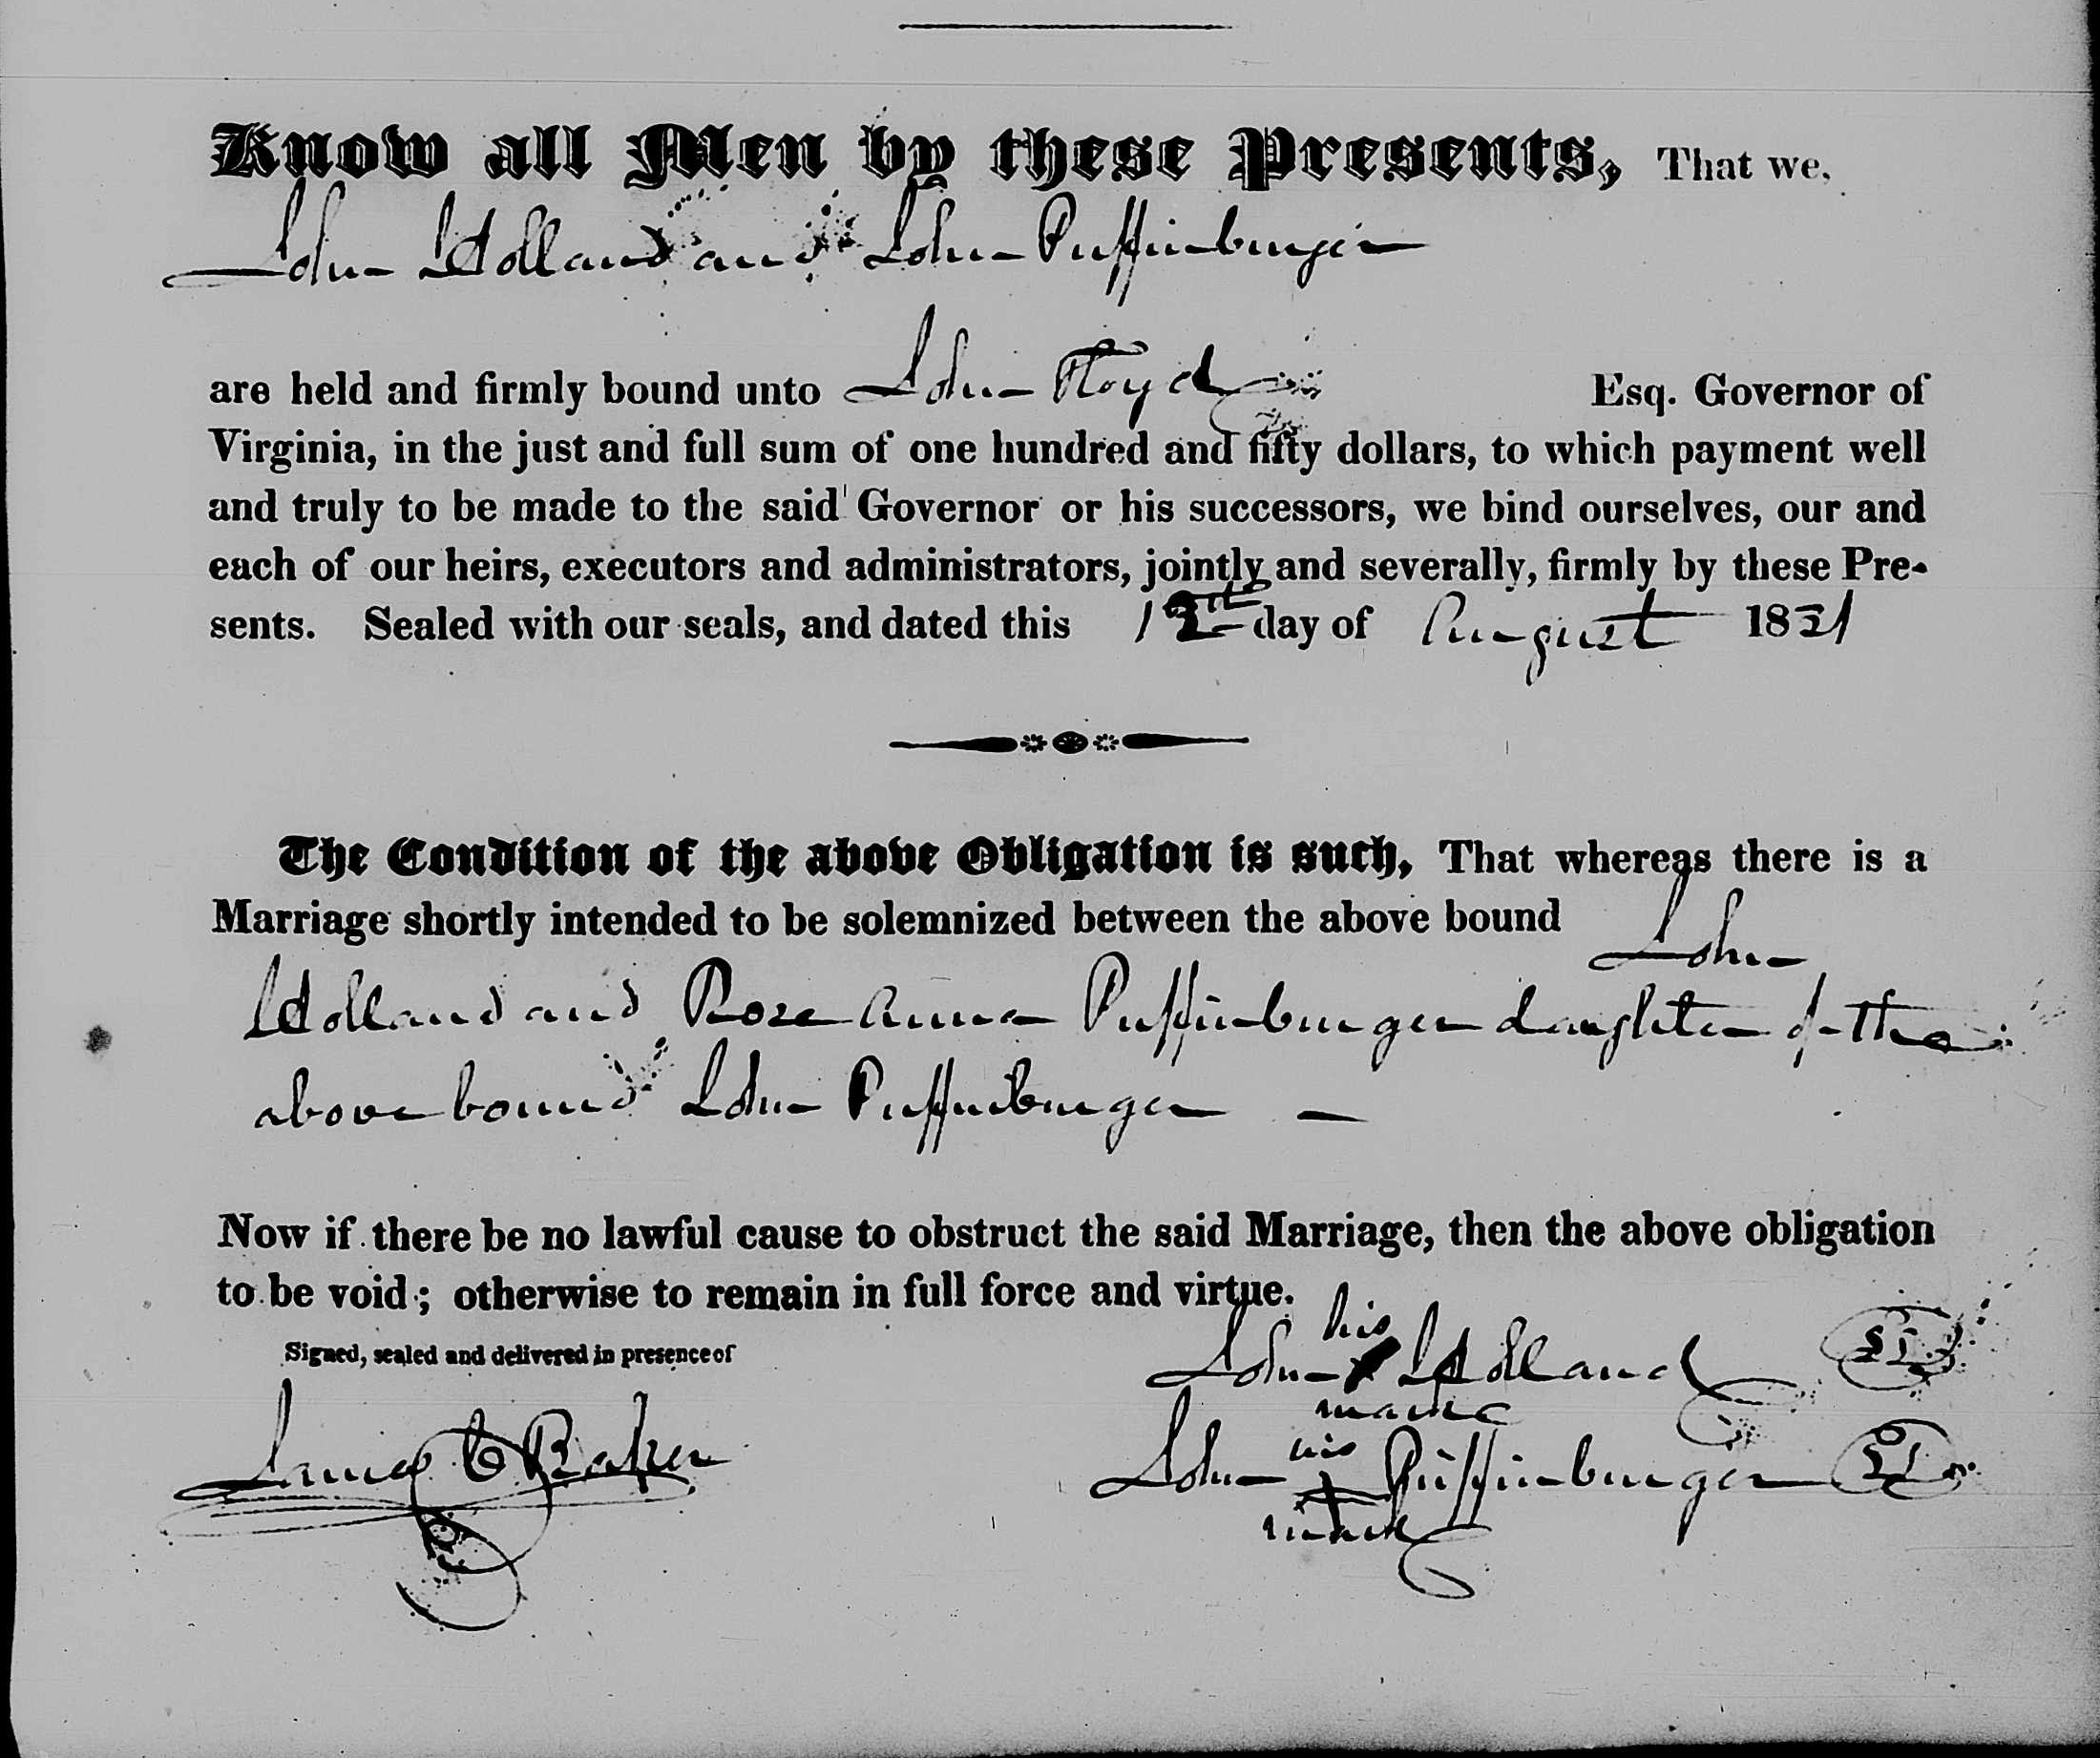 Know all Men by these Presents, That we,
John Holland and John Puffinburger
are held and firmly bound unto John Floyd Esq. Governor of
Virginia, in the just and full sum of one hundred and fifty dollars, to which payment well
and truly to be made to the said Governor or his successors, we bind ourselves, our and
each of our heirs, executors and administrators, jointly and severally, firmly by these Pre-
sents. Sealed with our seals, and dated this day of August 1831
The Condition of the above Obligation is such, That whereas there is a
Marriage shortly intended to be solemnized between the above bound John
Holland and Rose Anna Puffinburger daughter of the
above bound John Puffinburger —
Now if there be no lawful cause to obstruct the said Marriage, then the above obligation
to be void; otherwise to remain in full force and virtue.
Signed, sealed and delivered in presence of
his
John X Holland
mark
James C Baker
his
John Puffinburger
mark